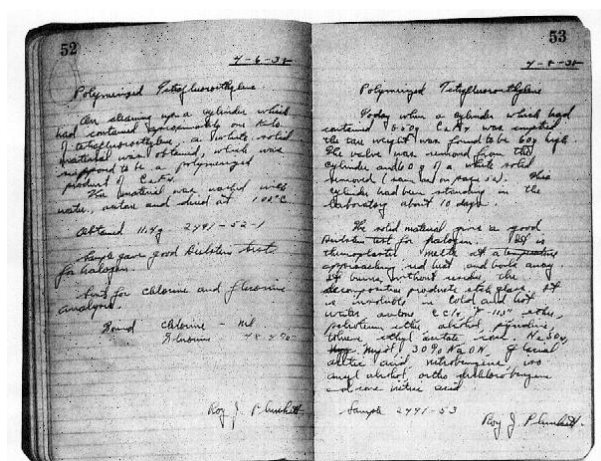 52
4-6-38
Polymerized Tetrafluoroethylene
On cleaning up a cylinder which
had contained approximately one kilo
of tetrafluoroethylene, a white solid
material was obtained, which was
supposed to be a polymerized
product of C2F4.
The material was washed with
water, acetone and dried at 100°C
Obtained 11.4g 2441-52-1
Sample gave good Beilstein test
for halogen.
for chlorine and fluorine
analysis.
Found Chlorine - nil
Fluorine
Roy J. Plunkett
53
4-8-38
Polymerized Tetrafluoroethylene
Today when a cylinder which had
contained C2F4 was emptied
the tare weight was found to be 60g high.
The valve was removed from the
cylinder and 60 g of a white solid
removed (same as on page 52). This
cylinder had been standing in the
laboratory about 10 days.
The solid material gives a good
Beilstein test for halogen. It is
thermoplastic melts at a temperature
approaching red heat and boils away.
It burns without residue the
decomposition products etch glass. It
is insoluble in cold and hot
water acetone CCl4 F-113 ether,
petroleum ether alcohol, pyridine,
toluene ethyl acetate conc. H2SO4
30% NaOH, glacial
acetic acid nitrobenzene iso
amyl alcohol, ortho dichlorobenzene
conc nitric acid
Sample 2441-53
Roy J. Plunkett